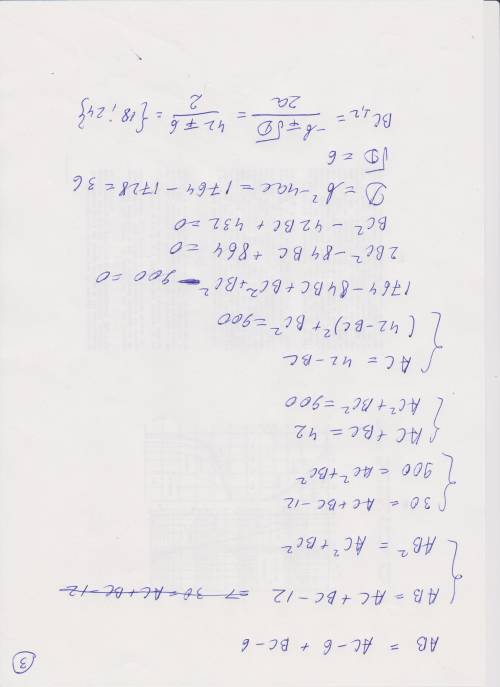 3
AB = AC-6 + BC-6
AB = AC + BC -12 => 30 = AC + BC -12
AB² = AC² + BC²
30 = AC + BC -12
900 = AC² + BC²
AC + BC = 42
AC² + BC² = 900
AC = 42 - BC
(42-BC)² + BC² = 900
1764 - 84BC + BC² + BC² - 900 = 0
2BC² - 84BC + 864 = 0
BC² - 42BC + 432 = 0
D = b² - 4ac = 1764 - 1728 = 36
√D = 6
BC₁,₂ = (-b ∓ √D)/2a = (42 ∓ 6)/2 = {18; 24}